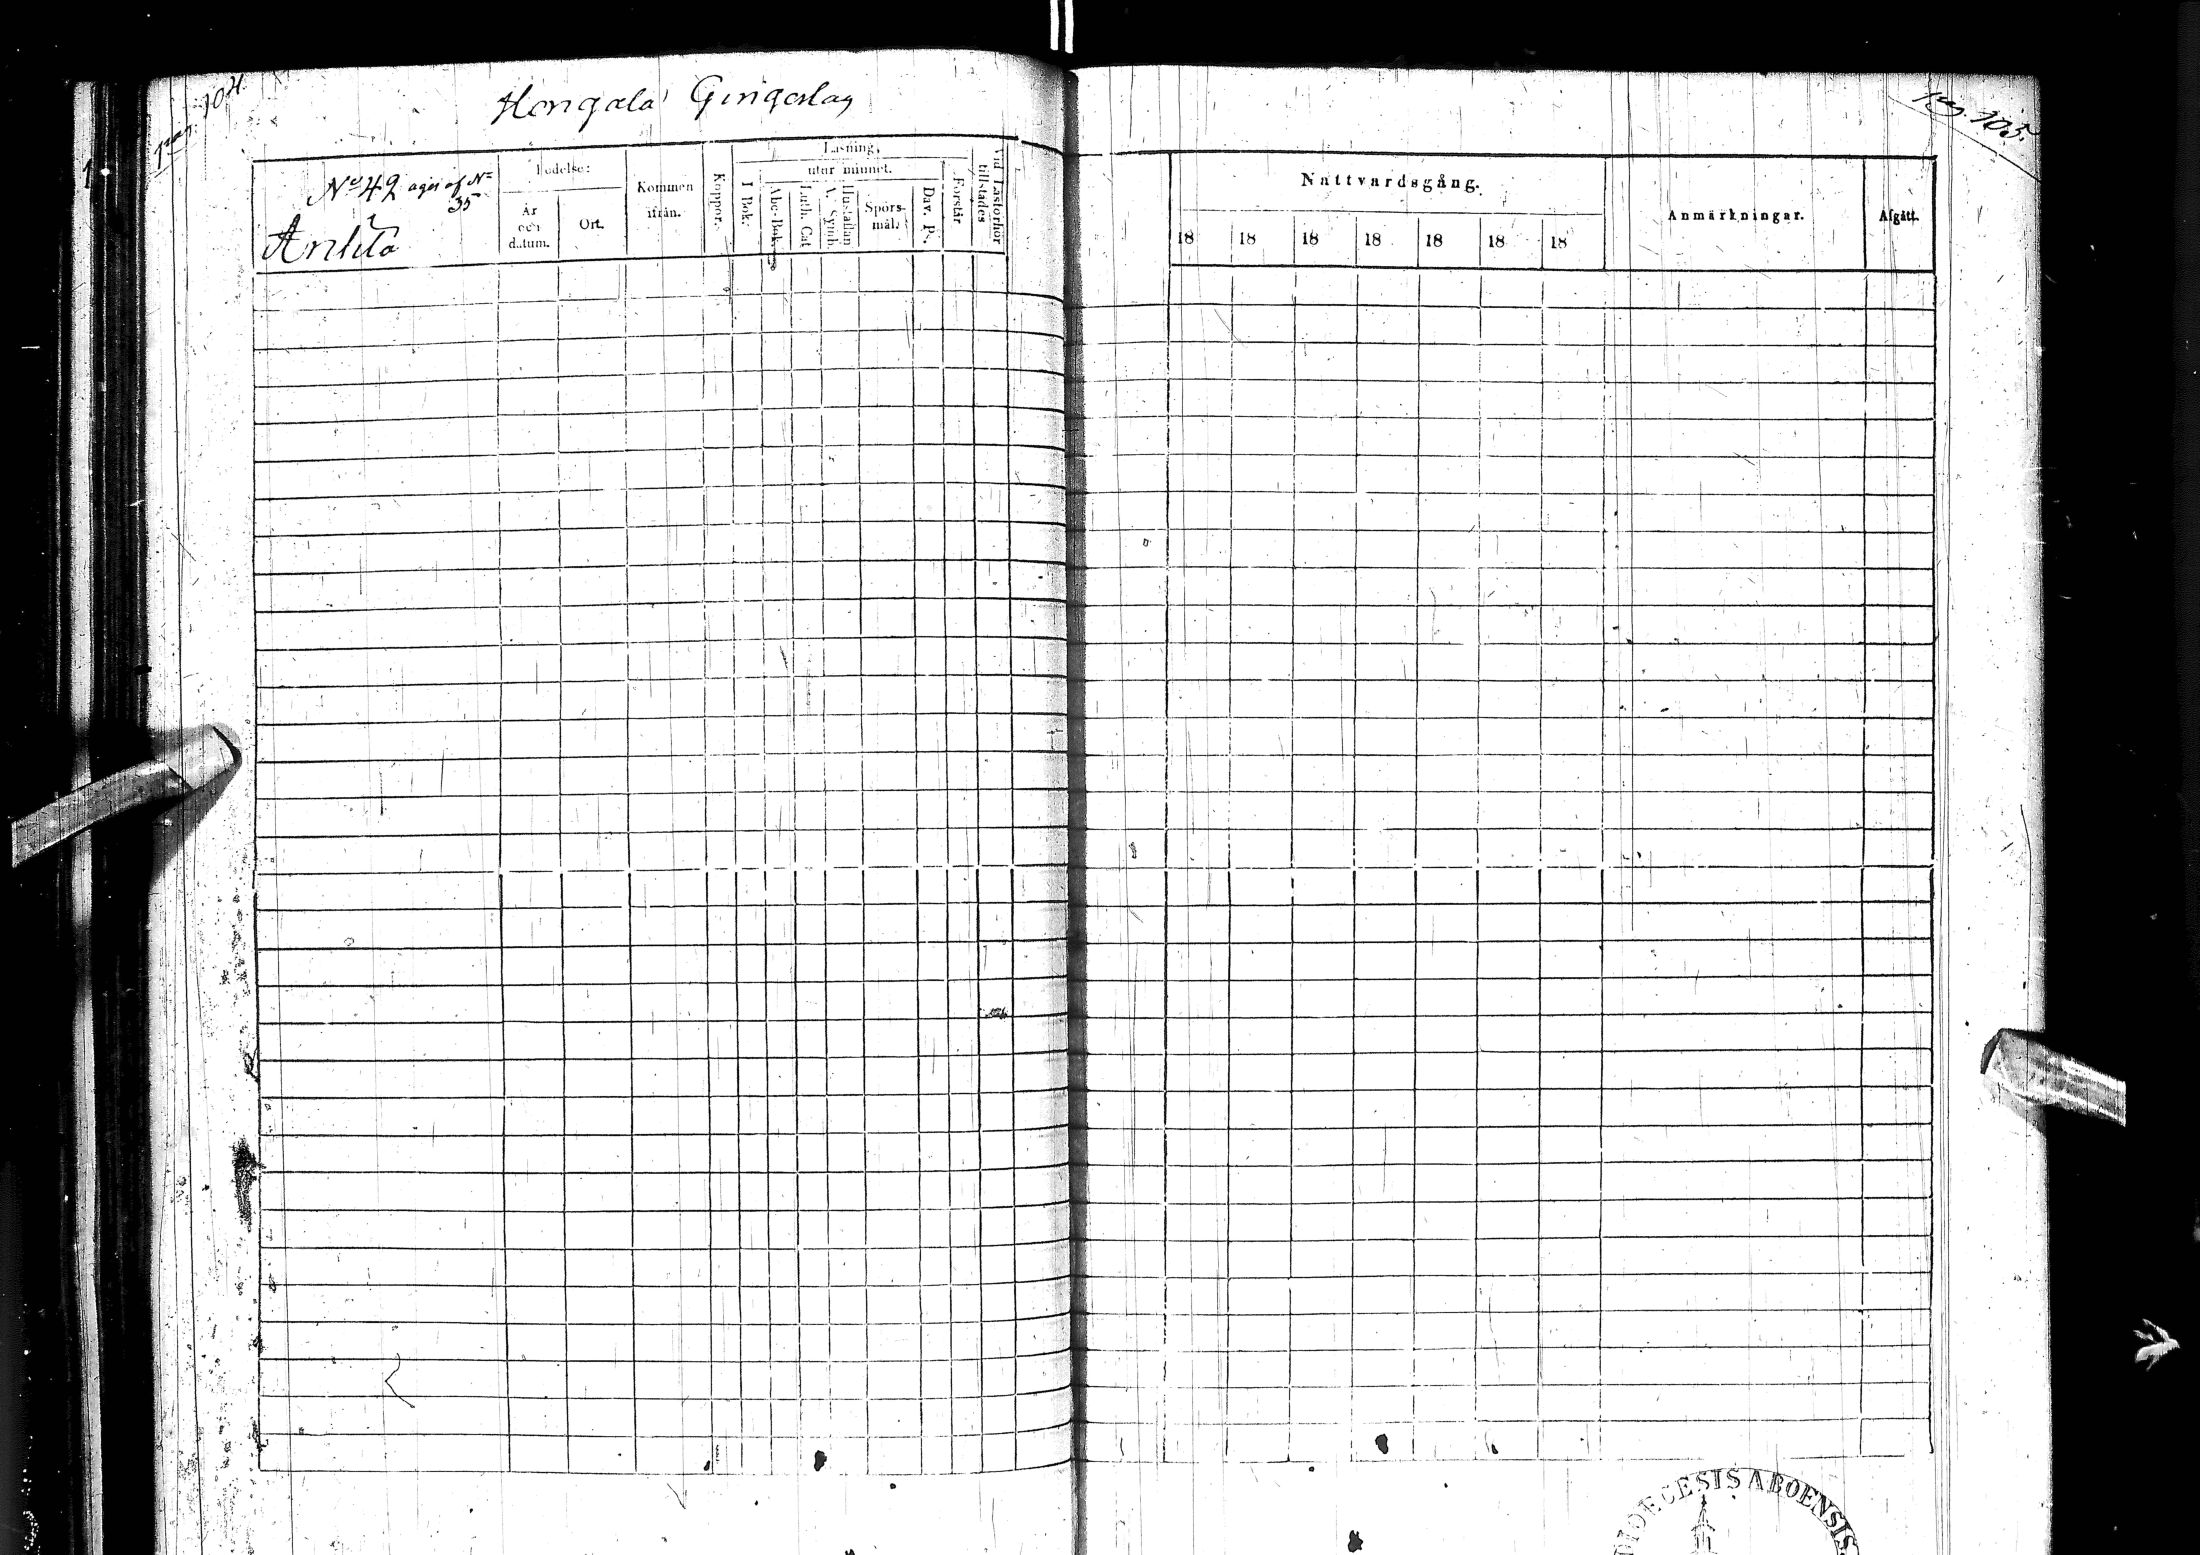 pag. 104.
Hongola Gingerlag
pag. 105.
No 42 äges af No 35
Anttila
Födelse:
År och datum.
Ort.
Kommen ifrån.
Koppor.
Läsning,
utur minnet.
I Bok.
Abc-Bok.
Luth. Cat
A. Symb.
Hustaflan
Spörs-mål.
Dav. Ps.
Förstår
Vid Läsförhör tillstädes
Nattvardsgång.
18 18 18 18 18 18 18
Anmärkningar.
Afgått.
DIOECESIS ABOENSIS